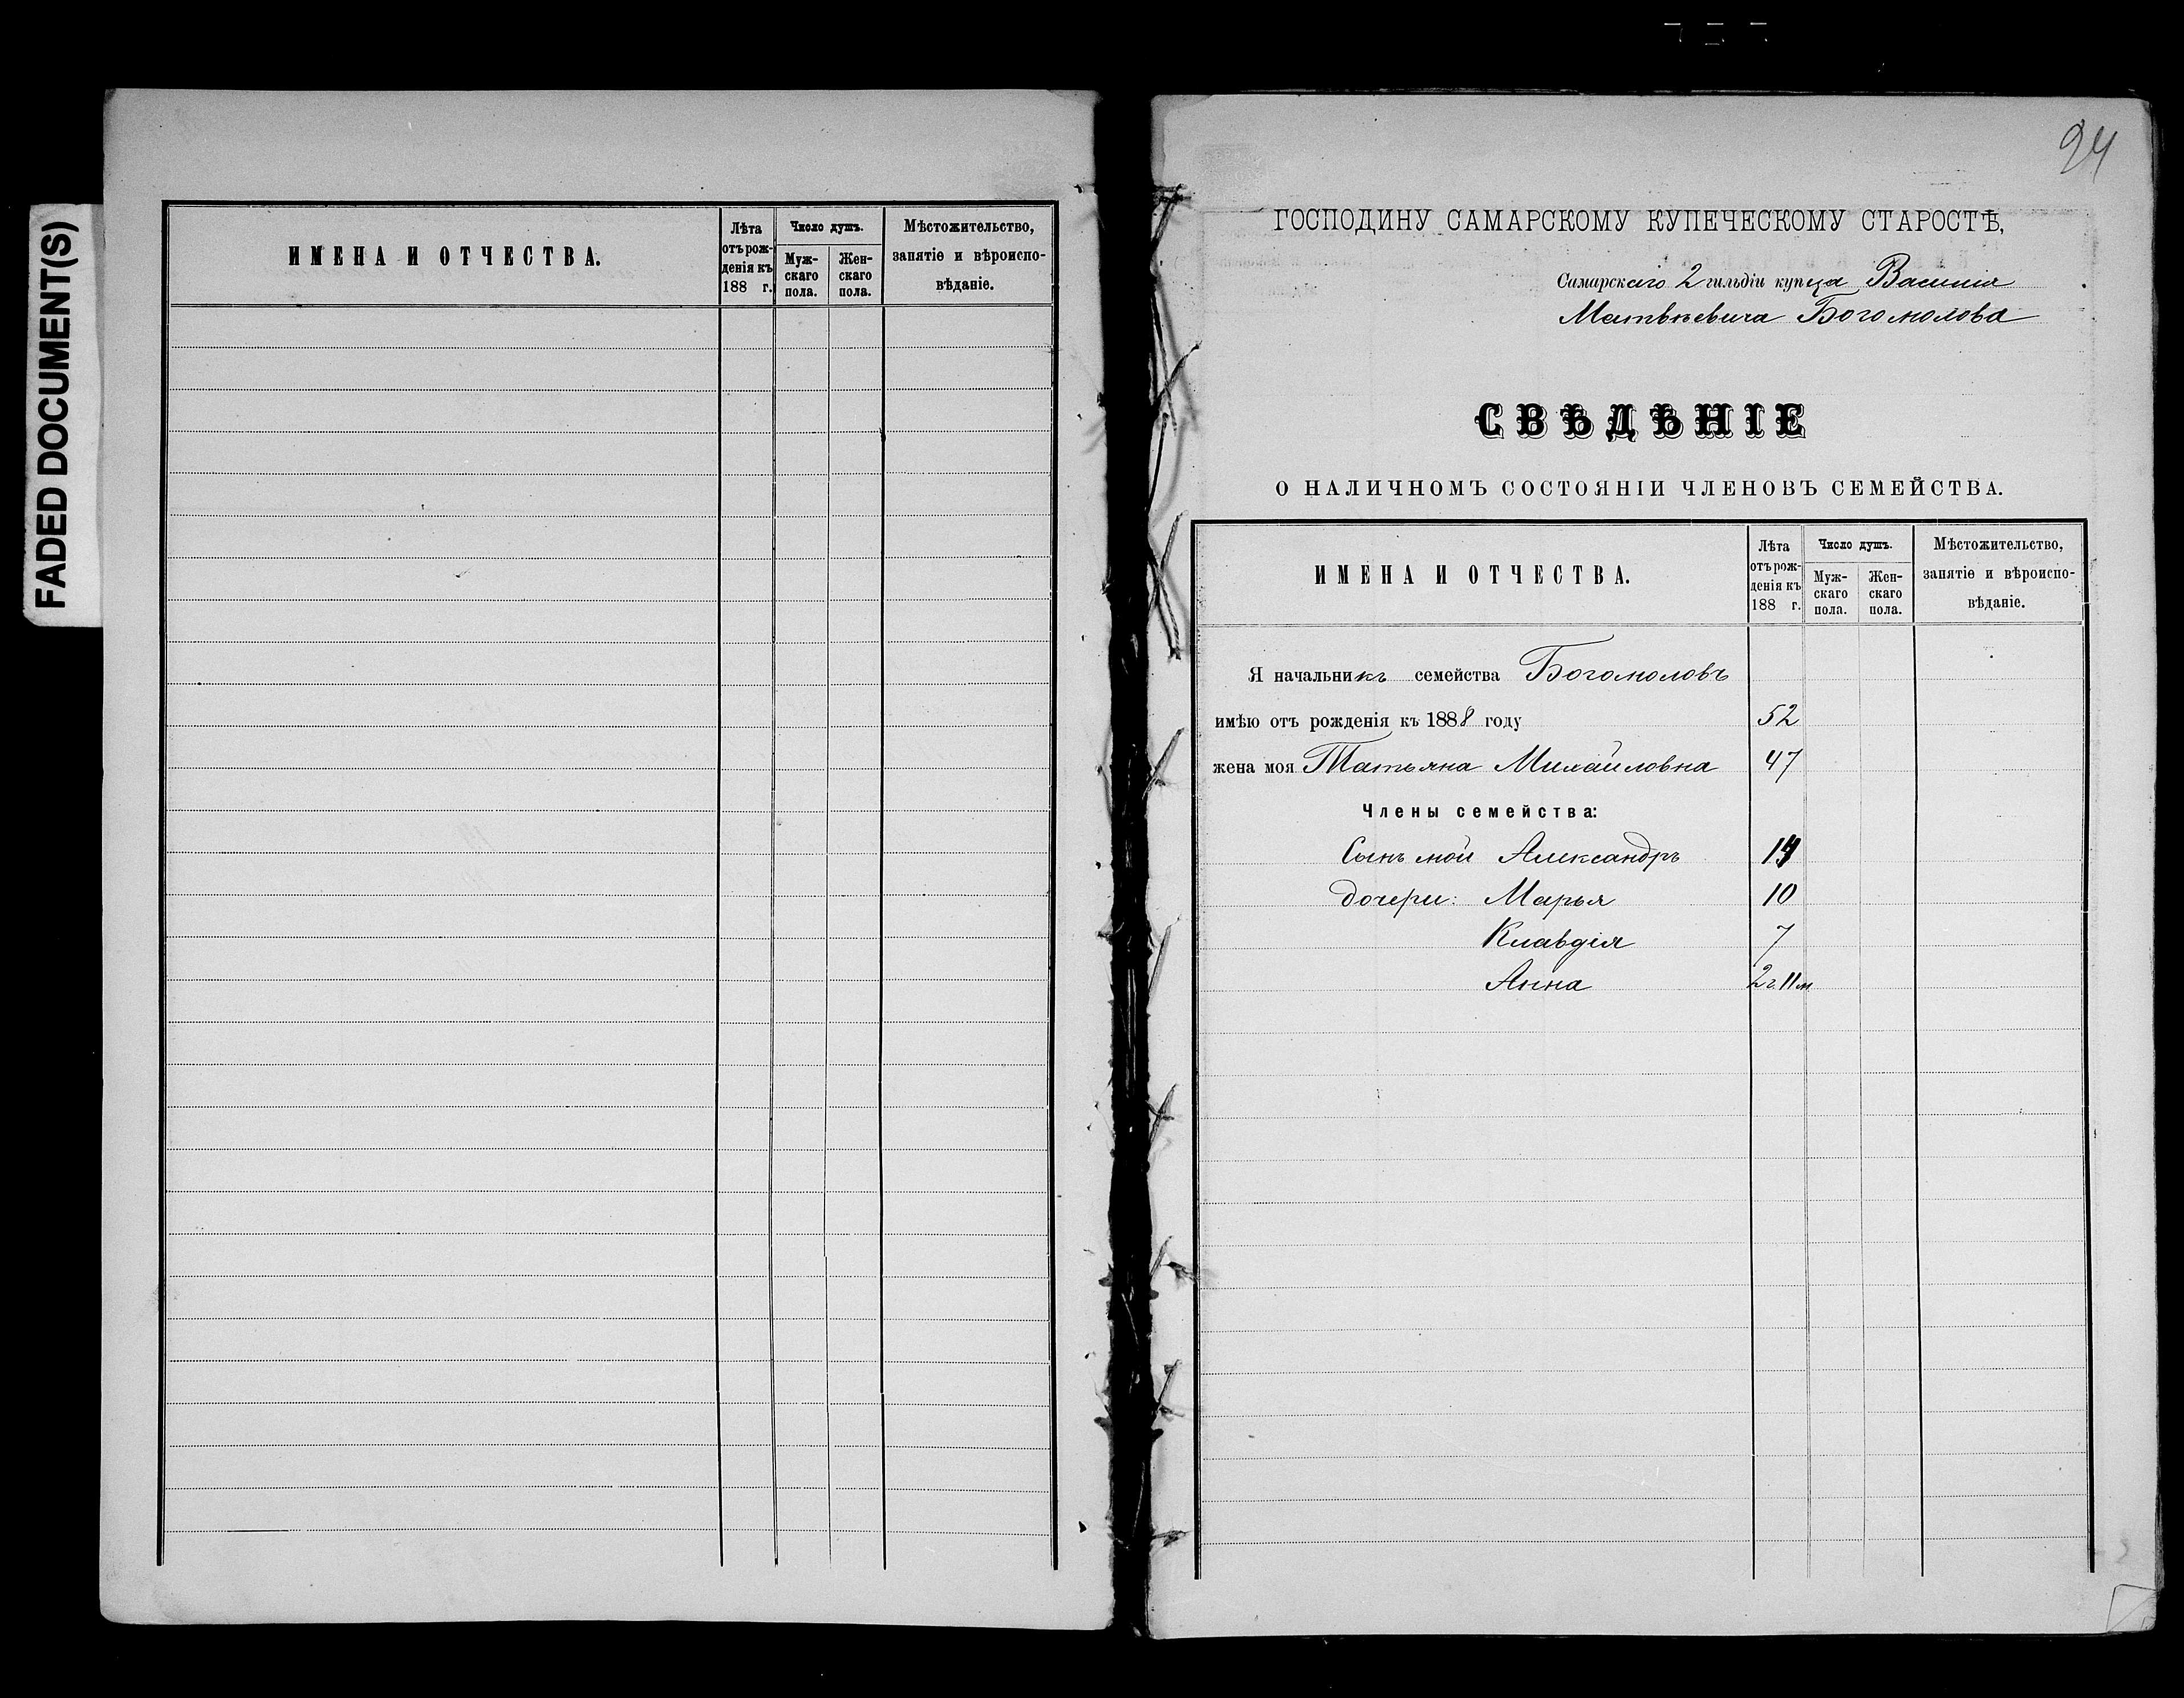 FADED DOCUMENT(S)
ИМЕНА И ОТЧЕСТВА.
Лѣта
отъ рож-
денія къ
188 г.
Число душъ.
Муж-
скаго
пола.
Жен-
скаго
пола.
Мѣстожительство,
занятіе и вѣроиспо-
вѣданіе.
94
ГОСПОДИНУ САМАРСКОМУ КУПЕЧЕСКОМУ СТАРОСТѢ,
Самарскаго 2 гильдіи купца Василія
Матвѣевича Богомолова
СВѢДѢНІЕ
О НАЛИЧНОМЪ СОСТОЯНІИ ЧЛЕНОВЪ СЕМЕЙСТВА.
ИМЕНА И ОТЧЕСТВА.
Лѣта
отъ рож-
денія къ
188 г.
Число душъ.
Муж-
скаго
пола.
Жен-
скаго
пола.
Мѣстожительство,
занятіе и вѣроиспо-
вѣданіе.
Я начальникъ семейства Богомоловъ
имѣю отъ рожденія къ 1888 году 52
жена моя Татьяна Михайловна 47
Члены семейства:
Сынъ мой Александръ
дочери: Марья 10
Клавдія 7
Анна 2 г. 11 м